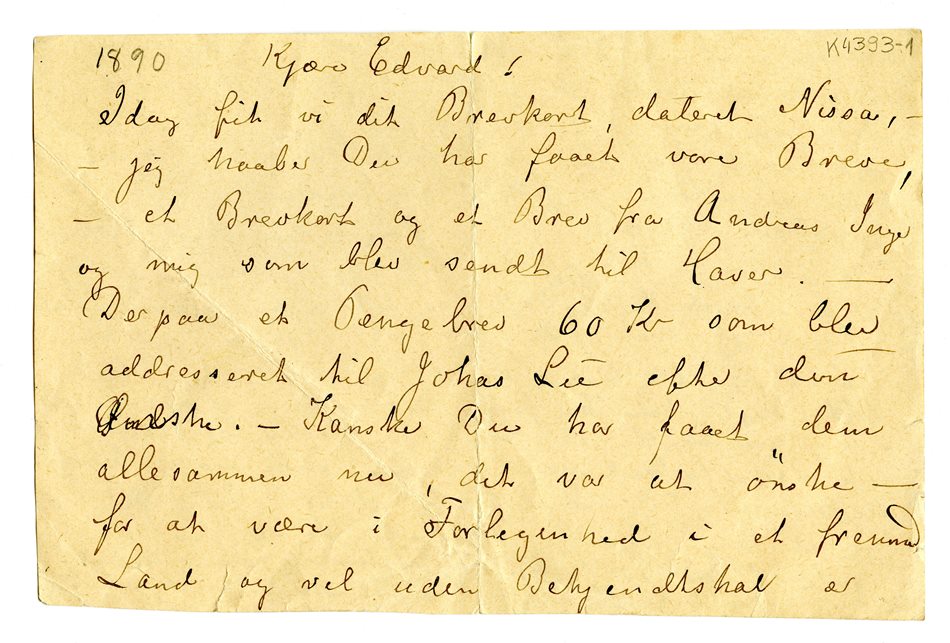 1890 Kjære Edvard! K4393-1
Idag fik vi dit Brevkort, dateret Nissa, –
– jeg haaber Du har faaet vore Breve,
– et Brevkort og et Brev fra Andreas Inger
og mig som blev sendt til Haver. —
Derpaa et Pengebrev 60 Kr som blev
addresseret til Johas Lie efter din
Ønske. – Kanske Du har faaet dem
allesammen nu, det var at önske –
for at være i Forlegenhed i et fremmed
Land og vel uden Bekjendtskab er